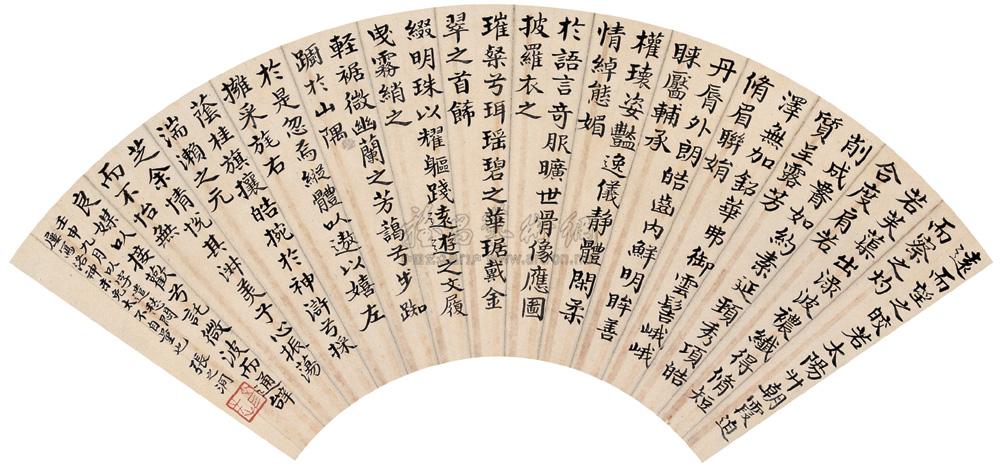 遠而望之皎若太陽升朝霞迫
而察之灼
若芙蕖出淥波襛纖得脩短
合度肩若
削成腰如約素延頸秀項皓
質呈露芳
澤無加鉛華弗御雲髻峨峨
脩眉聯娟
丹脣外朗皓齒內鮮明眸善
睞靨輔承
權瓌姿豔逸儀靜體閑柔
情綽態媚
於語言奇服曠世骨像應圖
披羅衣之
璀粲兮珥瑤碧之華琚戴金
翠之首飾
綴明珠以耀軀踐遠遊之文履
曳霧綃之
輕裾微幽蘭之芳藹兮步踟
躕於山隅
於是忽焉縱體以遨以嬉左
擁采旄右
蔭桂旗攘皓捥於神滸兮採
湍瀨之元
芝余情悅其淑美兮心振蕩
而不怡無
良媒以接歡兮託微波而通辭
壬申九月以遣愁悶
寫洛神未免不自量也 張之洞